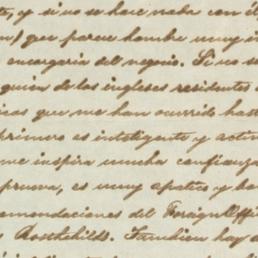 , y si no se hace nada con él
) que parece hombre muy in
encargaria del negocio. Si no se
guién de los ingleses residentes
icos que me han ocurrido hast
primero es inteligente y activ
me inspira mucha confianza
prueva, es muy apatico y ha
omendaciones del Foreign Offi
s Rosthchilds. Tambien hay d